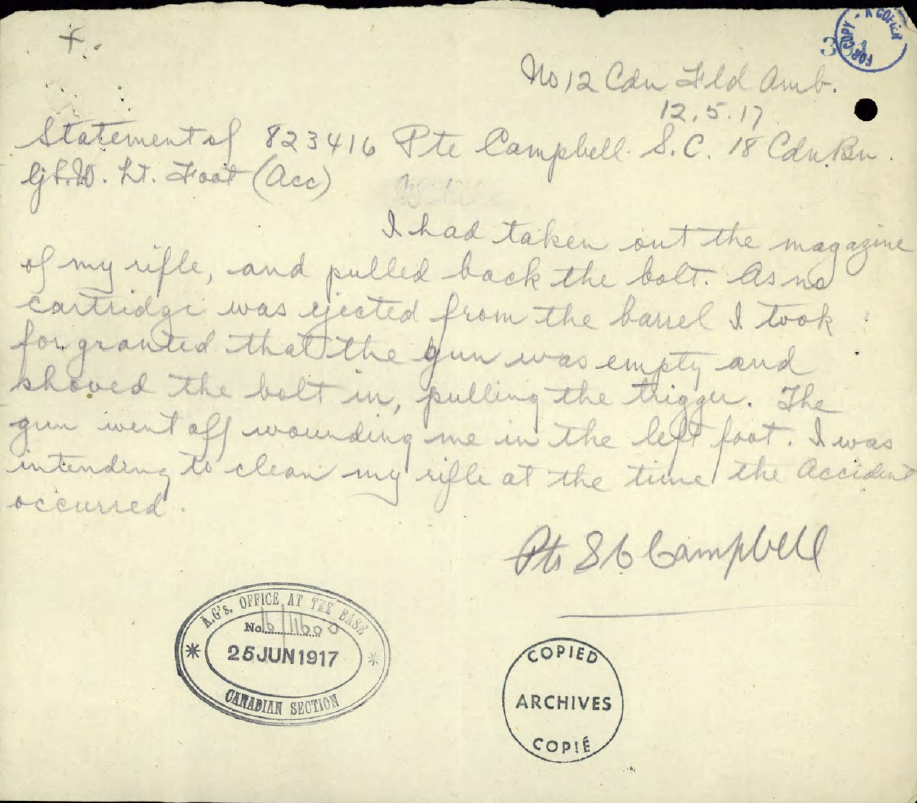 f.
FOR COPY - À COPIER
No 12 Cdn Fld Amb.
12.5.17
Statement of 823416 Pte Campbell S.C. 18 Cdn. Bn.
G.S.W. Lt. Foot (Acc)
I had taken out the magazine
of my rifle, and pulled back the bolt. As no
cartridge was ejected from the barrel I took
for granted that the gun was empty and
shoved the bolt in, pulling the trigger. The
gun went off wounding me in the left foot. I was
intending to clean my rifle at the time the Accident
occurred.
Pte S C Campbell
A.G's. OFFICE AT THE BASE
No.
25 JUN 1917
CANADIAN SECTION
COPIED
ARCHIVES
COPIÉ